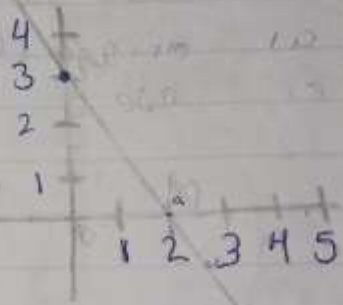 4
3
2
1
a
1 2 3 4 5